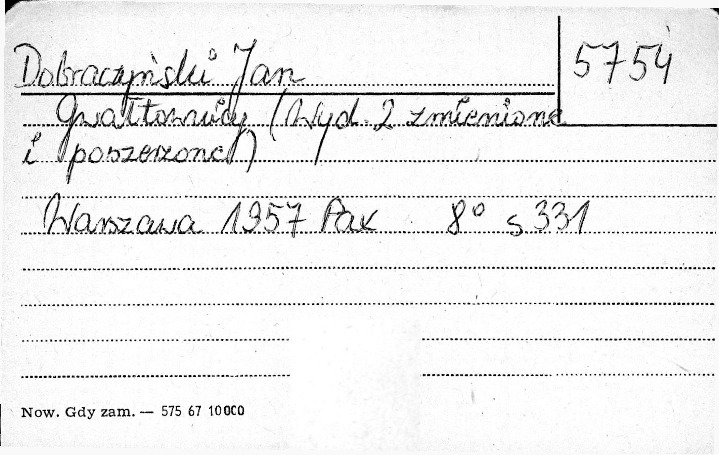 Dobraczyński Jan
5754
Gwałtownicy (Wyd. 2 zmienione
i poszerzone)
Warszawa 1957 Pax 8° s 331
Now. Gdy zam. — 575 67 10000